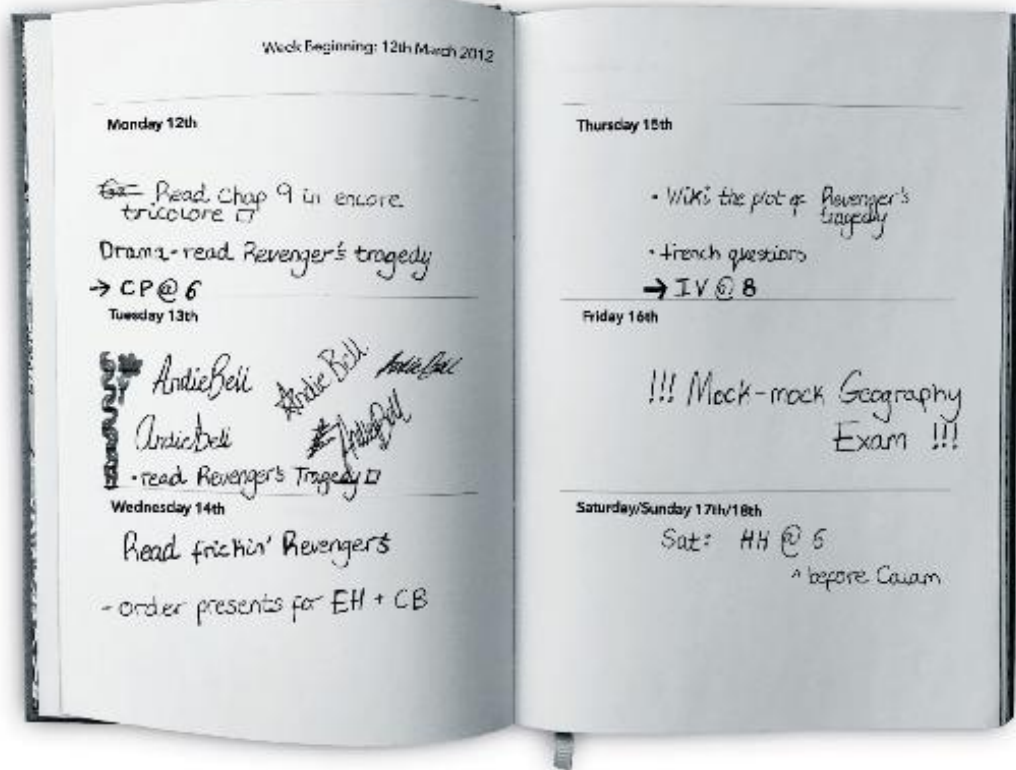 Week Beginning: 12th March 2012
Monday 12th
Read Chap 9 in encore
tricolore
Drama - read Revenger's tragedy
→ CP @ 6
Tuesday 13th
Andie Bell
Andie Bell
Andie Bell
Andie Bell
Andie Bell
• read Revenger's Tragedy
Wednesday 14th
Read frickin' Revengers
- order presents for EH + CB
Thursday 15th
• Wiki the plot of Revenger's
tragedy
• French questions
→ IV @ 8
Friday 16th
!!! Mock-mock Geography
Exam !!!
Saturday/Sunday 17th/18th
Sat: HH @ 6
^ before Calam